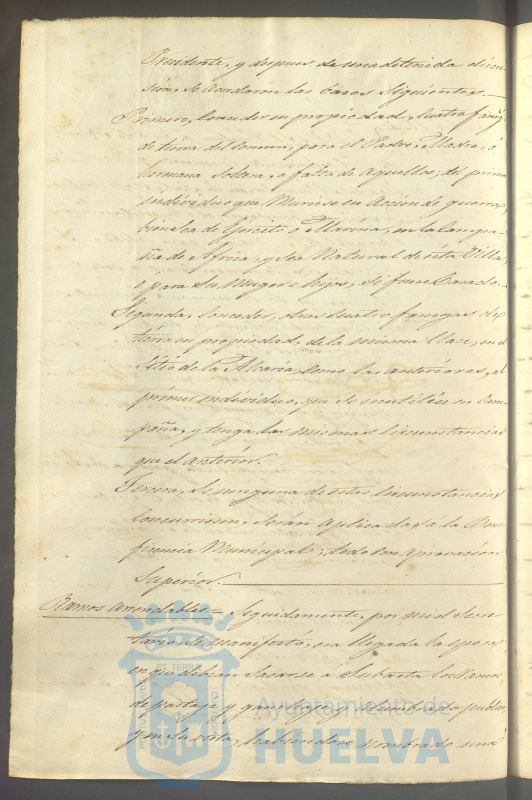 Presidente, y despues de una detenida discu-
sión, se acordaron las bases siguientes.—
Primera, Conceder en propiedad, cuatro fang.s
de tierra del comun, para el Padre, Madre, ó
hermana soltera, a falta de aquellos, del primer
individuo que Muriese en Accion de guerra,
bien sea de Ejercito o Marina, en la Campa-
ña de Africa, y sea Natural de ésta Villa,
o para su Muger e hijos, si fuese Casado.—
Segunda, Conceder, otras cuatro fanegas de
tierra en propiedad, de la misma Clase, en el
Sitio de la Alcaria, como las anteriores, al
primer individuo, que se inutilíse en Cam-
paña, y tenga las mismas Circunstancias
que el anterior.
Tercera, Si ninguna de estas Circunstancias
Concurriesen, serán Aplicadas á la Bene-
ficencia Municipal; todo con Aprovacion
Superior.
Ramos arrendables = Seguidamente, por mi el Secre-
tario, se manifestó, era llegada la epoca
en que debian Sacarse á Subasta los Ramos
de
publico,
habiendose nombrado una
Ayuntamiento de
HUELVA